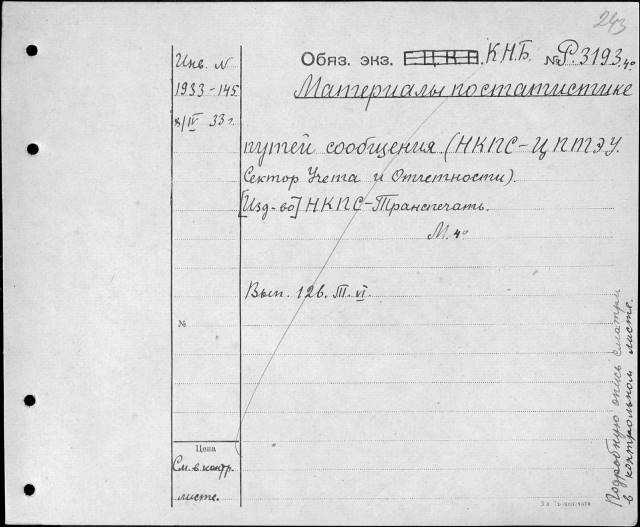 243
Инв. N
1933-145
8/IV 33 г.
Обяз. экз. ЦКБ К.Н.Б. № Р.3193.4°
Материалы по статистике
путей сообщения (НКПС-ЦПТЭУ.
Сектор Учета и Отчетности).
[Изд-во] НКПС-Транспечать.
М. 4°
Вып. 126. III. VI.
№
Цена
См. в контр.
листе.
Подробную опись смотри
в контрольном листе.